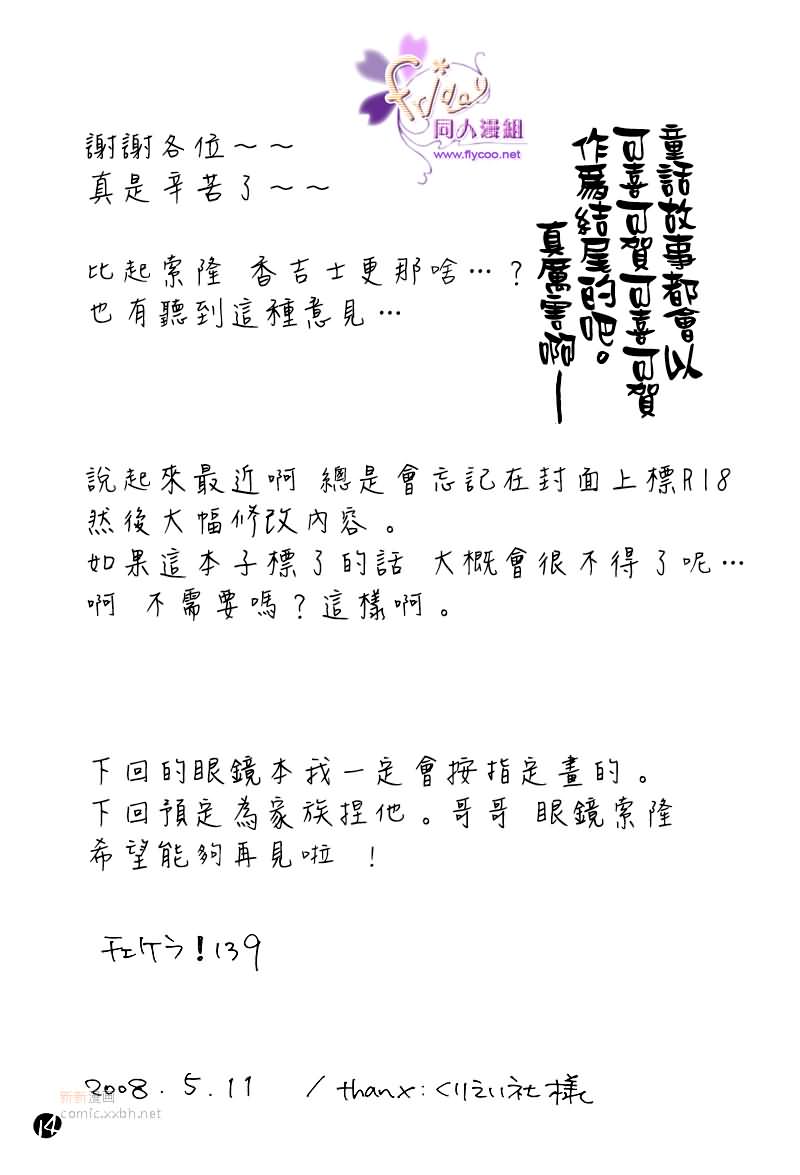 Friday
同人漫組
www.flycoo.net
童話故事都會以
可喜可賀可喜可賀
作為結尾的吧。
真厲害啊—
謝謝各位～～
真是辛苦了～～
比起索隆 香吉士更那啥…？
也有聽到這種意見…
說起來最近啊 總是會忘記在封面上標R18
然後大幅修改內容。
如果這本子標了的話 大概會很不得了呢…
啊 不需要嗎？這樣啊。
下回的眼鏡本我一定會按指定畫的。
下回預定為家族捏他。哥哥 眼鏡索隆
希望能夠再見啦 ！
チェケラ！139
2008.5.11 / thanx:くりえい社様
新新漫画
comic.xxbh.net
14